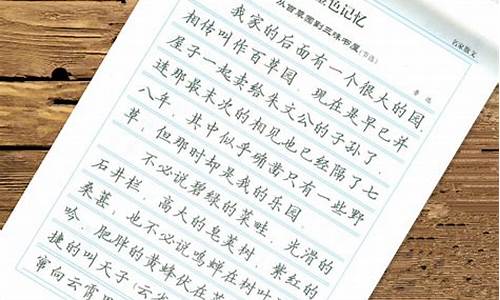 色记忆
名家散文
从百草园到三味书屋(节选)
鲁迅
我家的后面有一个很大的园，
相传叫作百草园。现在是早已并
屋子一起卖给朱文公的子孙了，
连那最末次的相见也已经隔了七
八年，其中似乎确凿只有一些野
草；但那时却是我的乐园。
不必说碧绿的菜畦，光滑的
石井栏，高大的皂荚树，紫红的
桑葚；也不必说鸣蝉在树叶
吟，肥胖的黄蜂伏在菜
捷的叫天子（云雀
窜向云霄